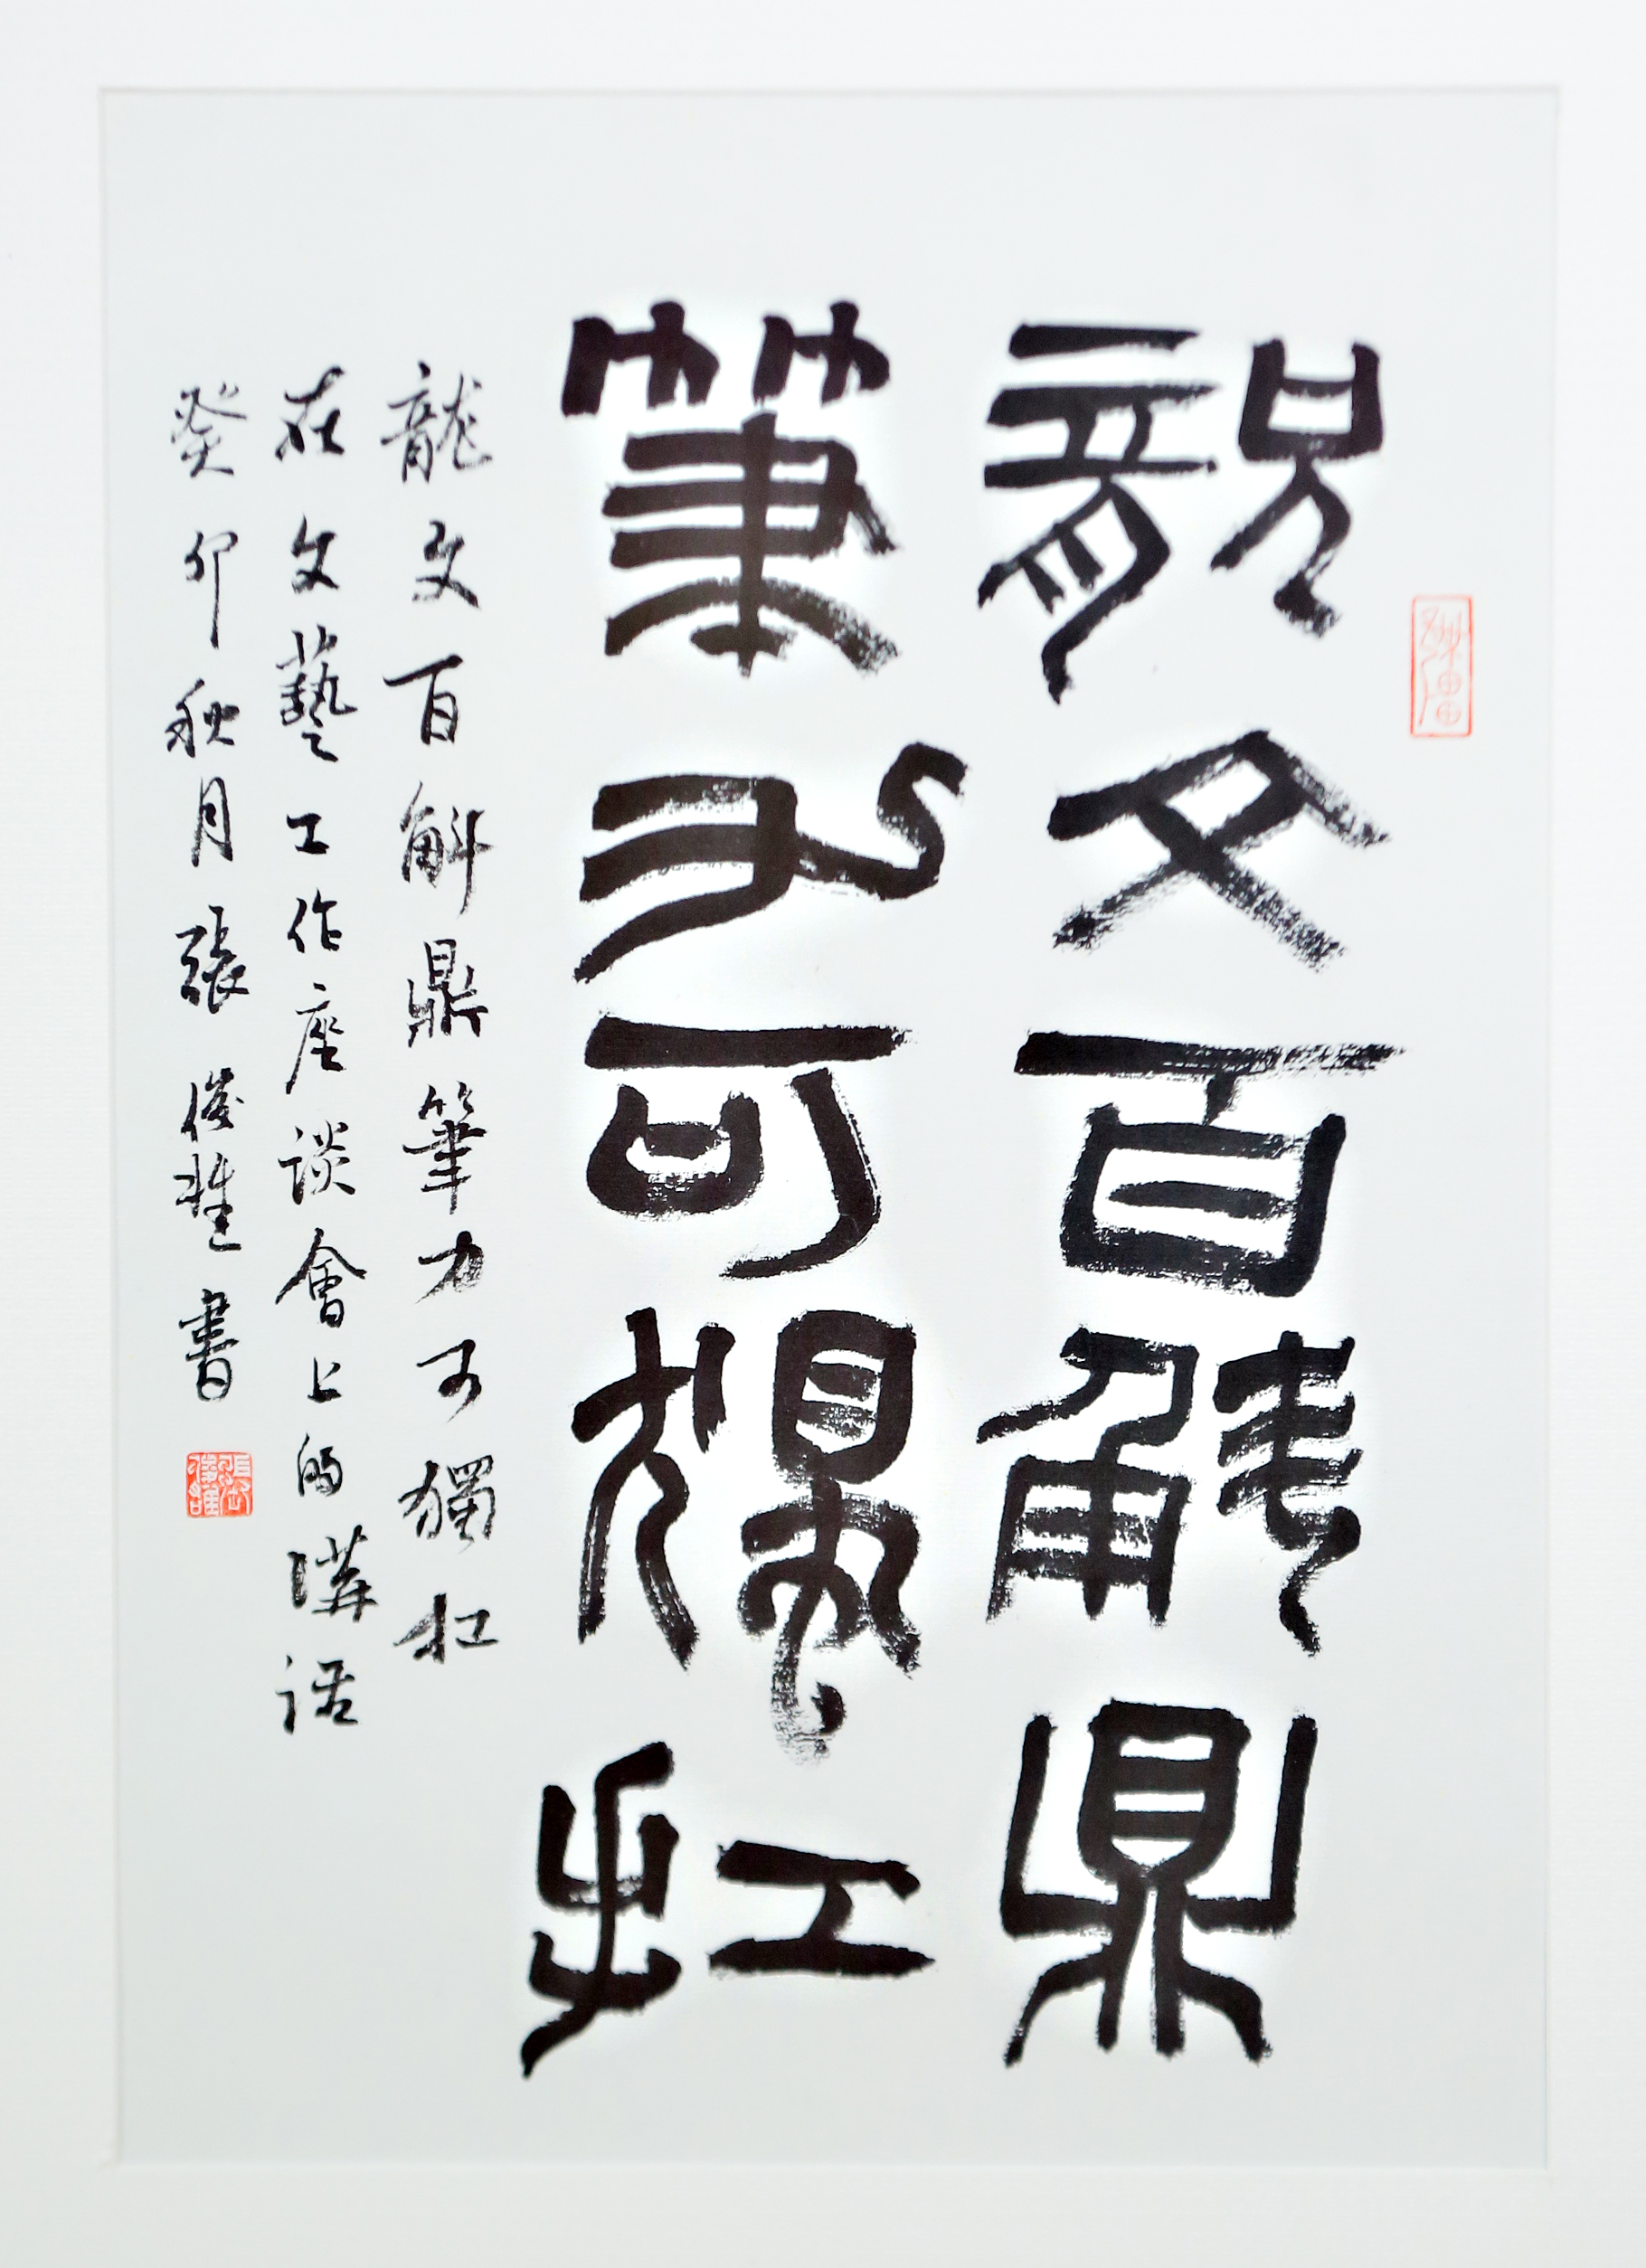 龍文百斛鼎
筆力可獨扛
龍文百斛鼎筆力可獨扛
在文藝工作座谈會上的講话
癸卯秋月張俊雅書